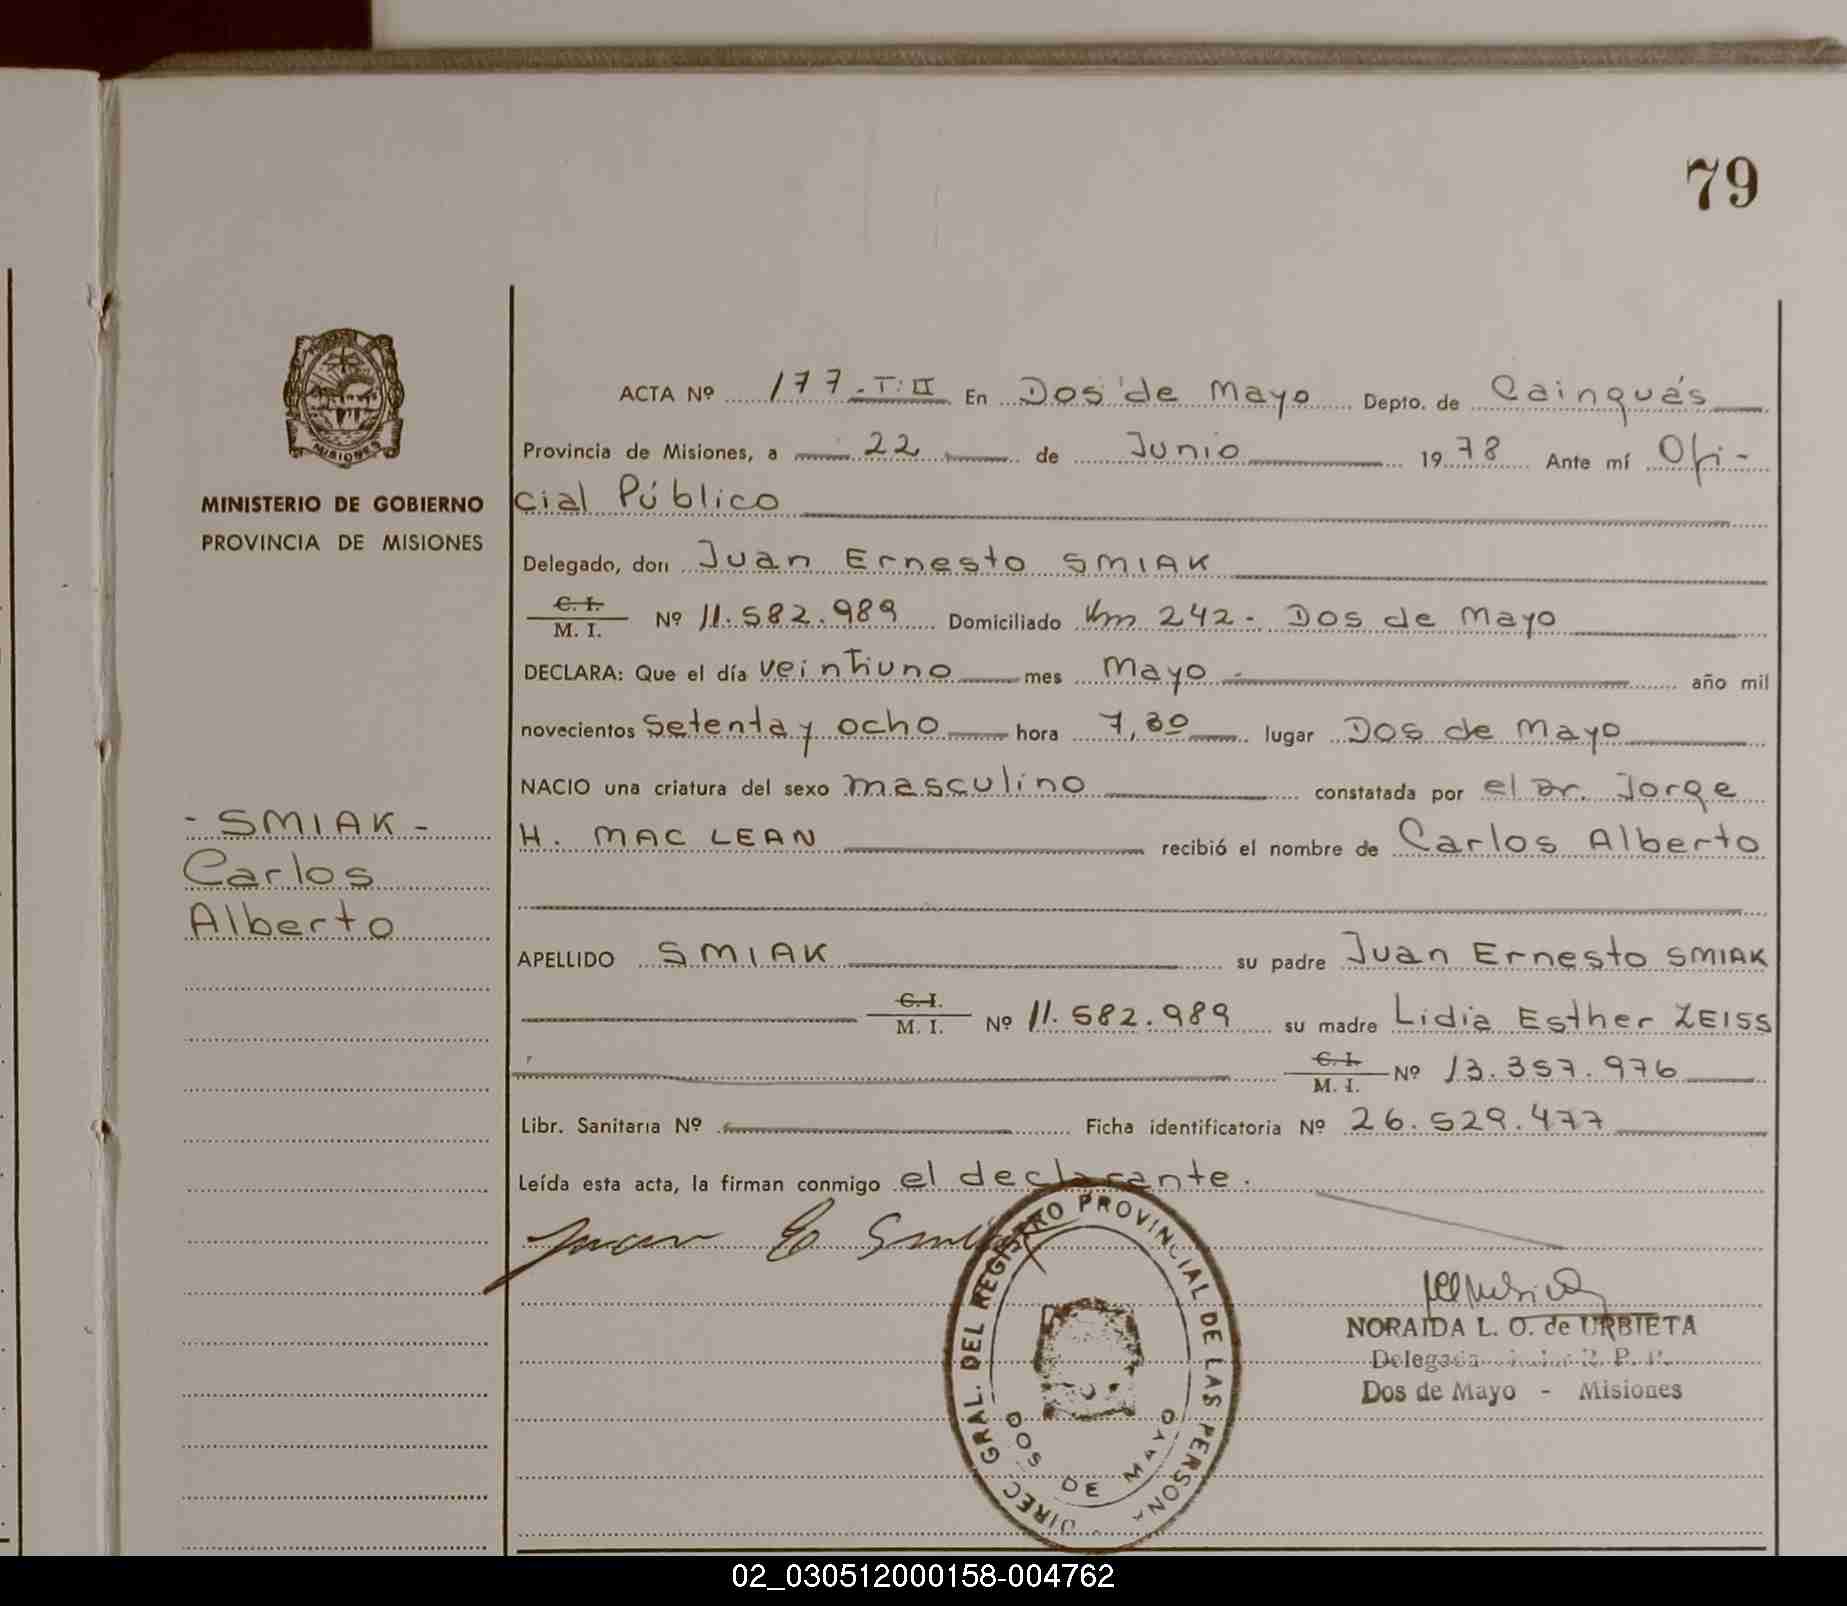 79
MISIONES
MINISTERIO DE GOBIERNO
PROVINCIA DE MISIONES
- SMIAK -
Carlos
Alberto
ACTA Nº 177 - T: II En Dos de Mayo Depto. de Cainguás
Provincia de Misiones, a 22 de Junio 1978 Ante mí Ofi-
cial Público
Delegado, don Juan Ernesto SMIAK
C. I.
M. I. Nº 11.582.989 Domiciliado Km 242 - Dos de Mayo
DECLARA: Que el día veintiuno mes Mayo año mil
novecientos setenta y ocho hora 7,30 lugar Dos de Mayo
NACIO una criatura del sexo masculino constatada por el Dr. Jorge
H. MAC LEAN recibió el nombre de Carlos Alberto
APELLIDO SMIAK su padre Juan Ernesto SMIAK
C. I.
M. I. Nº 11.582.989 su madre Lidia Esther ZEISS
C. I.
M. I. Nº 13.357.976
Libr. Sanitaria Nº Ficha identificatoria Nº 26.529.477
Leída esta acta, la firman conmigo el declarante.
Juan E Smiak
DIREC GRAL. DEL REGISTRO PROVINCIAL DE LAS PERSONA
DOS DE MAYO
NORAIDA L. O. de URBIETA
Delegada R. P. P.
Dos de Mayo - Misiones
02_030512000158-004762